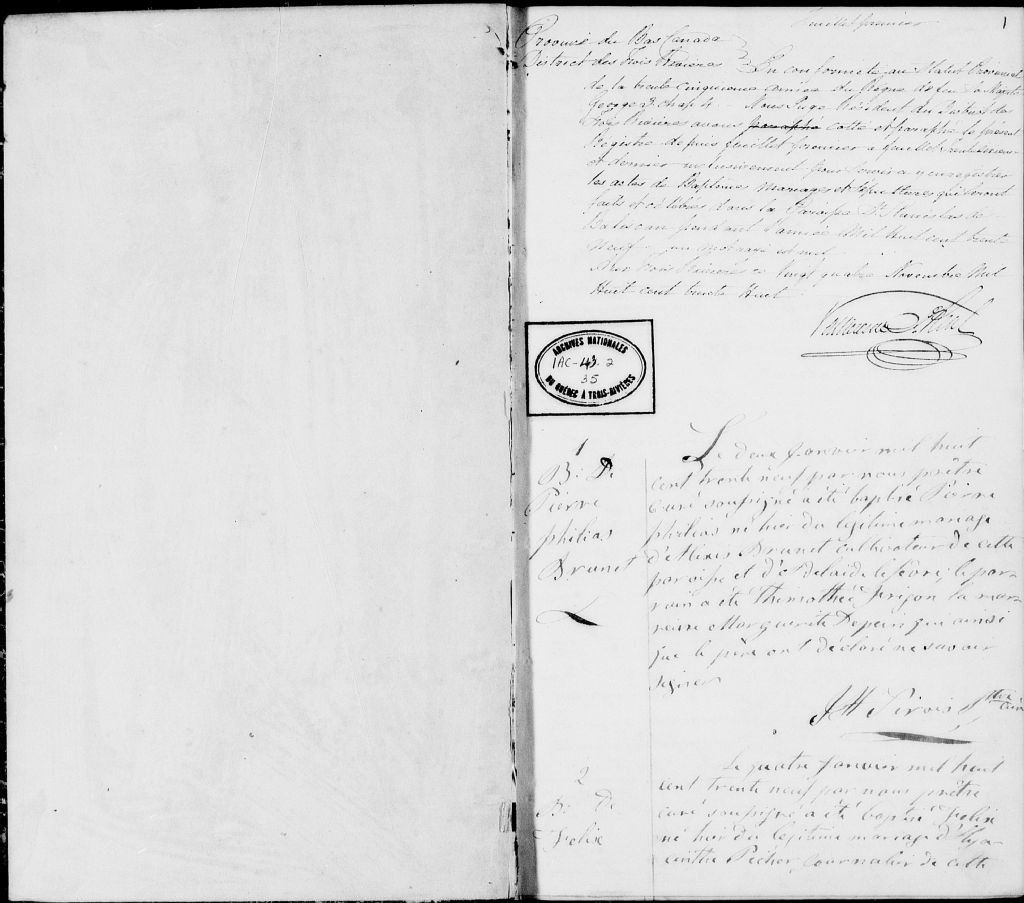 feuillet premier
1
Province du Bas Canada
District des Trois Rivieres } En conformité au Statut Provincial
de la trente cinquieme année du Règne de feu Sa Majesté
George 3 chap 4 - Nous Juge Résident du District des
Trois Rivières avons paraphé cotté et paraphé le présent
Registre depuis feuillet premier a feuillet
et dernier inclusivement pour servir a y enregistrer
les actes de Baptêmes Mariages et Sepultures qui seront
faits et célébrés dans la Paroisse St Stanislas de
Batiscan pendant l'année Mil Huit cent trente
Neuf - un mot rayé est nul
Aux Trois Rivieres ce vingt quatre Novembre Mil
Huit cent trente Huit
Vallieres de St Réal
ARCHIVES NATIONALES
1AC-43.2
35
DU QUÉBEC À TROIS-RIVIÈRES
1
B: De
Pierre
philias
Brunet
Le deux janvier mil huit
cent trente neuf par nous prêtre
curé soussigné a été baptisé Pierre
philias né hier du légitime mariage
d'Alexis Brunet cultivateur de cette
paroisse et d'Adelaide lefevre; le par-
rain a été Thimothée la mar-
reine Marguerite Depein qui ainsi
que le père ont déclaré ne savoir
signer
Ptre
curé
2
B: De
Felix
Le quatre janvier mil huit
cent trente neuf par nous prêtre
curé soussigné a été baptisé Felix
né hier du légitime mariage d'Hya-
cinthe Pécher, journalier de cette